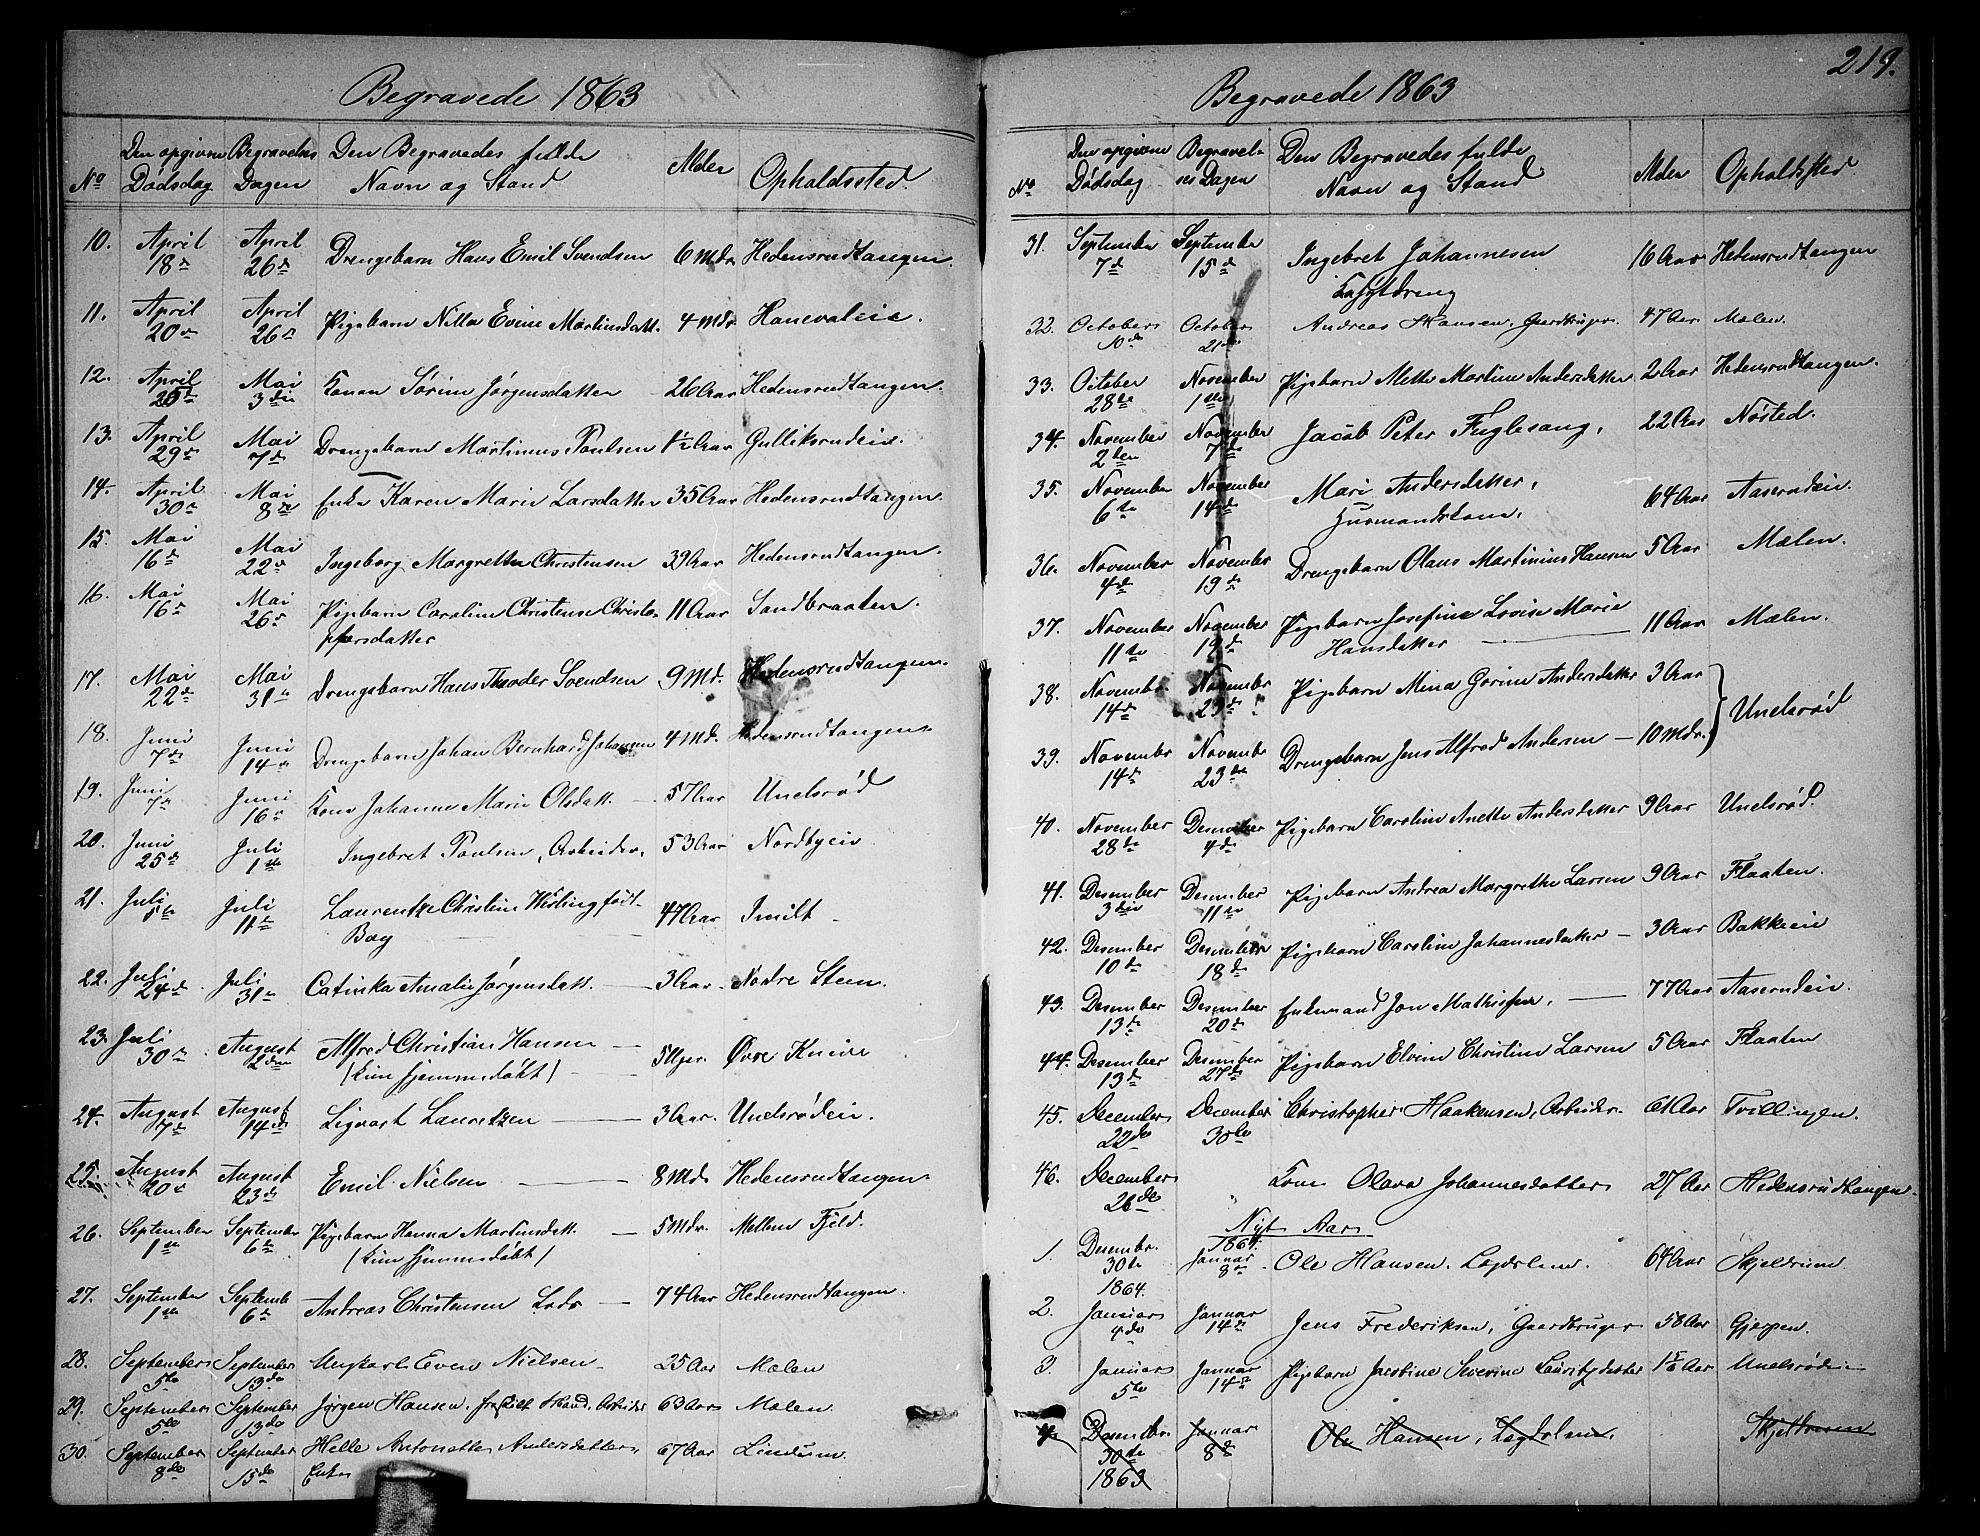 Begravede 1863
No Den opgivne Dødsdag Begravelses Dagen Den Begravedes fulde Navn og Stand Alder Opholdssted.
10. April 18de April 26de Drengebarn Hans Emil Svendsen 6 Mdr. Hedensrudtangen.
11. April 20de April 26de Pigebarn Nilla Evine Martinsdatt. 4 Mdr. Hanevaleie.
12. April 25de Mai 3die Konen Sørine Jørgensdatter 26 Aar Hedensrudtangen.
13. April 29de Mai 7de Drengebarn Martinius Poulsen 1½ Aar Gulliksrudeie.
14. April 30te Mai 8de Enke Karen Marie Larsdatter 35 Aar Hedensrudtangen.
15. Mai 16de Mai 22de Ingeborg Margrethe Christensen 39 Aar Hedensrudtangen.
16. Mai 16de Mai 26de Pigebarn Caroline Christense Christo-
pfersdatter 11 Aar Sandbraaten.
17. Mai 22de Mai 31te Drengebarn Hans Theoder Svendsen 9 Md. Hedensrudtangen.
18. Juni 7de Juni 14de Drengebarn Johan Bernhard Johansen 4 Md. Hedensrudtangen.
19. Juni 7de Juni 16de Kone Johanne Marie Olsdatt. 57 Aar Unelsrød
20. Juni 25de Juli 1ste Ingebret Poulsen, Arbeider, 53 Aar Nordbyeie.
21. Juli 5te Juli 11te Laurentze Christine Hesling født
Bag 47 Aar Smilt
22. Juli 24de Juli 31te Catinka Amalie Jørgensdatt. 3 Aar. Nedre Steen.
23. Juli 30te August 2den Alfred Christian Hansen
(kun hjemmedøbt) 5 Uger Øvre Kniive
24. August 7de August 14de Sigvart Lauretzen 3 Aar. Unelsrødeie.
25. August 20de August 23de Emil Nielsen 8 Md. Hedensrudtangen
26. September 1ste September 6te Pigebarn Hanna Martinsdatt.
(kun hjemmedøbt) 5 Mdr. Mellem Fjeld.
27. September 1ste September 6te Andreas Christensen Lods 74 Aar Hedensrudtangen.
28. September 5te September 13de Ungkarl Even Nielsen 25 Aar Mælen
29. September 5te September 13de Jørgen Hansen, fraskilt Mand, Arbeider 63 Aar Mælen.
30. September 8de September 15de Helle Antonette Andersdatter,
Enke 67 Aar Lindum.
219.
Begravede 1863
No Den opgivne Dødsdag Begravelses Dagen Den Begravedes fulde Navn og Stand Alder Opholdsted.
31. September 7de September 15de Ingebret Johannesen
16 Aar Hedensrudtangen
32. October 10de October 21de Andreas Hansen, Gaardbruger. 47 Aar Mælen.
33. October 28de November 1ste Pigebarn Mette Martine Andersdatter 2 Aar Hedensrudtangen.
34. November 2den November 7de Jacob Peter Fuglesang, 22 Aar Nøsted.
35. November 6te November 14de Mari Andersdatter,
Husmandskone, 64 Aar Aaserudeie.
36. November 4de November 19de Drengebarn Olaus Martinius Hansen 5 Aar Mælen.
37. November 11te November 19de Pigebarn Josefine Lovise Marie
Hansdatter 11 Aar Mælen.
38. November 14de November 23de Pigebarn Mina Gorine Andersdatter 3 Aar
39. November 14de November 23de Drengebarn Jens Alfred Andersen 10 Mdr. Unelsrød
40. November 28de Desember 4de Pigebarn Caroline Anette Andersdatter 9 Aar Unelsrød.
41. Desember 3die Desember 11te Pigebarn Andrea Margrethe Larsen 9 Aar Flaaten.
42. Desember 10de Desember 18de Pigebarn Caroline Johannesdatter 3 Aar Bakkeeie
43. Desember 13de Desember 20de Enkemand Jon Mathissen, 77 Aar Aaserudeie.
44. Desember 13de Desember 27de Pigebarn Elvine Christine Larsen 5 Aar Flaaten
45. December 22de December 30te Christopher Haakensen, Arbeider. 61 Aar Tvillingen.
46. December 26de " Kone Olava Johannesdatter 27 Aar Hedensrudtangen.
Nyt Aar
1864.
1 Desembr. 30te Januar 8de Ole Hansen, Lægdslem. 64 Aar Skjeldrum.
1864.
2. Januar 4de Januar 14de Jens Frederiksen, Gaardbruger 58 Aar Gjerpen.
3. Januar 5te Januar 14de Pigebarn Justine Severine Lauritzdatter Aar Unelsrødeie
4. Desembr. 30te Januar 8de Ole Hansen, Lægdslem. Skjeldrum
1863